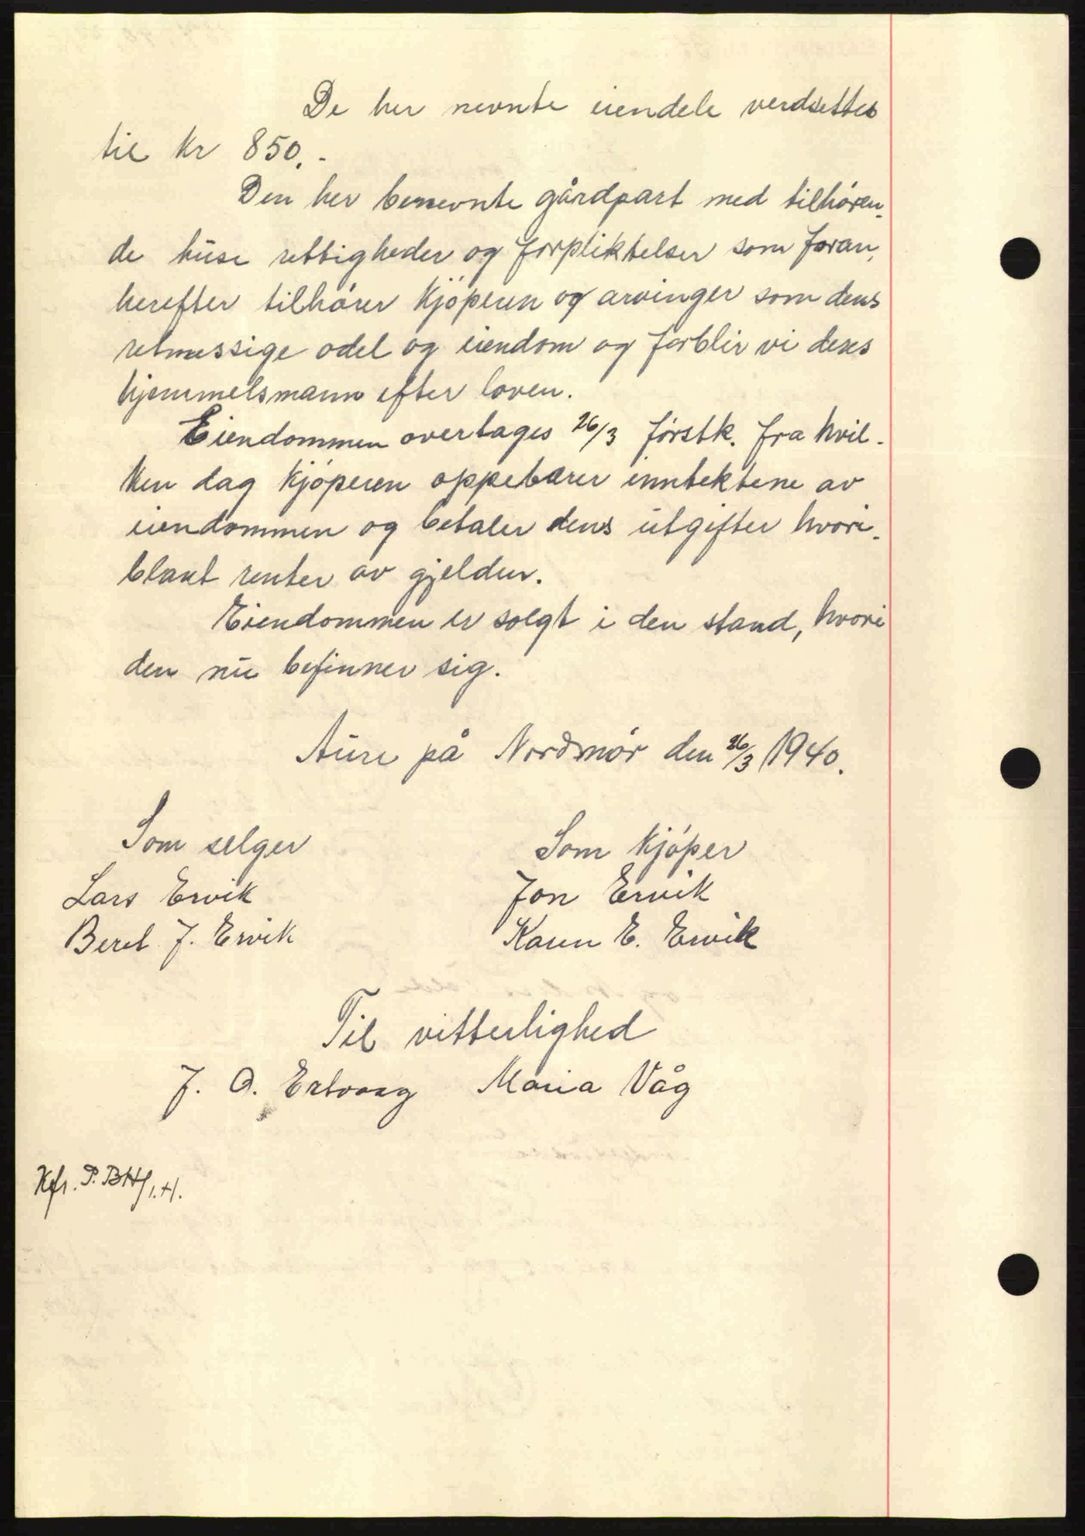 De her nevnte eiendele verdsettes
til kr 850.-
Den her benevnte gårdpart med tilhøren-
de huse rettigheder og forpliktelser som foran,
herefter tilhører kjøperen og arvinger som dens
retmessige odel og eiendom og forblir vi deres
hjemmelsmann efter loven.
Eiendommen overtages 26/3 førstk. fra hvil-
ken dag kjøperen oppebærer inntektene av
eiendommen og betaler dens utgifter hvori-
blant renter av gjelden.
Eiendommen er solgt i den stand, hvori
den nu befinner sig.
Aure på Nordmør den 26/3 1940.
Som selger
Som kjøper
Lars Ervik
Jon Ervik
Beret J. Ervik
Karen E. Ervik
Til vitterlighed
J. O. Ertvaag Maria Våg
Kfr.